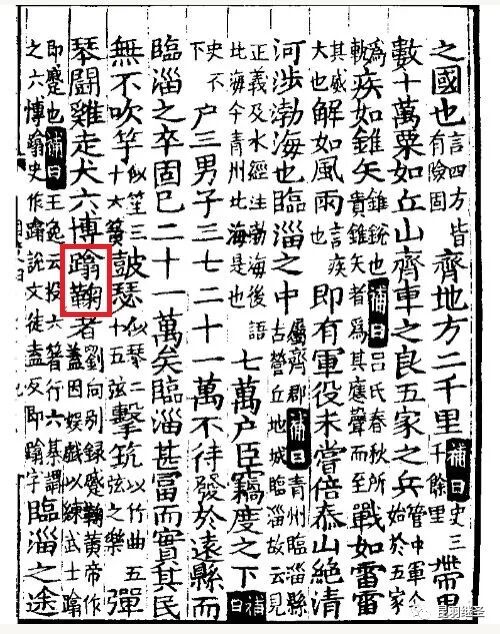 之國也言四方皆有險固齊地方二千里補曰史三千餘里帶甲
數十萬粟如丘山齊車之良五家之兵管中軍令始於五家
為軌疾如錐矢錐銳也補曰呂氏春秋所貴錐矢者為其應聲而至戰如雷
其威大也解如風雨言疾也即有軍役未嘗倍泰山絕清
河涉渤海也臨淄之中屬齊郡補曰青州臨淄縣古營丘地城臨淄故云見
正義及水經注渤海後語北海今青州北海是也七萬戶臣竊度之下補曰
史不下戶三男子三七二十一萬不待發於遠縣而
臨淄之卒固已二十一萬矣臨淄甚富而實其民
無不吹竽似笙三十六簧鼓瑟似琴二十五弦擊筑以竹曲五弦之樂彈
琴鬪雞走犬六博蹹鞠者劉向別錄蹵鞠黃帝作蓋因娛戲以練武士蹹
即蹵也補曰王逸云投六箸行六棊謂之六博蹹史作蹋說文徒盍反即蹹字臨淄之途